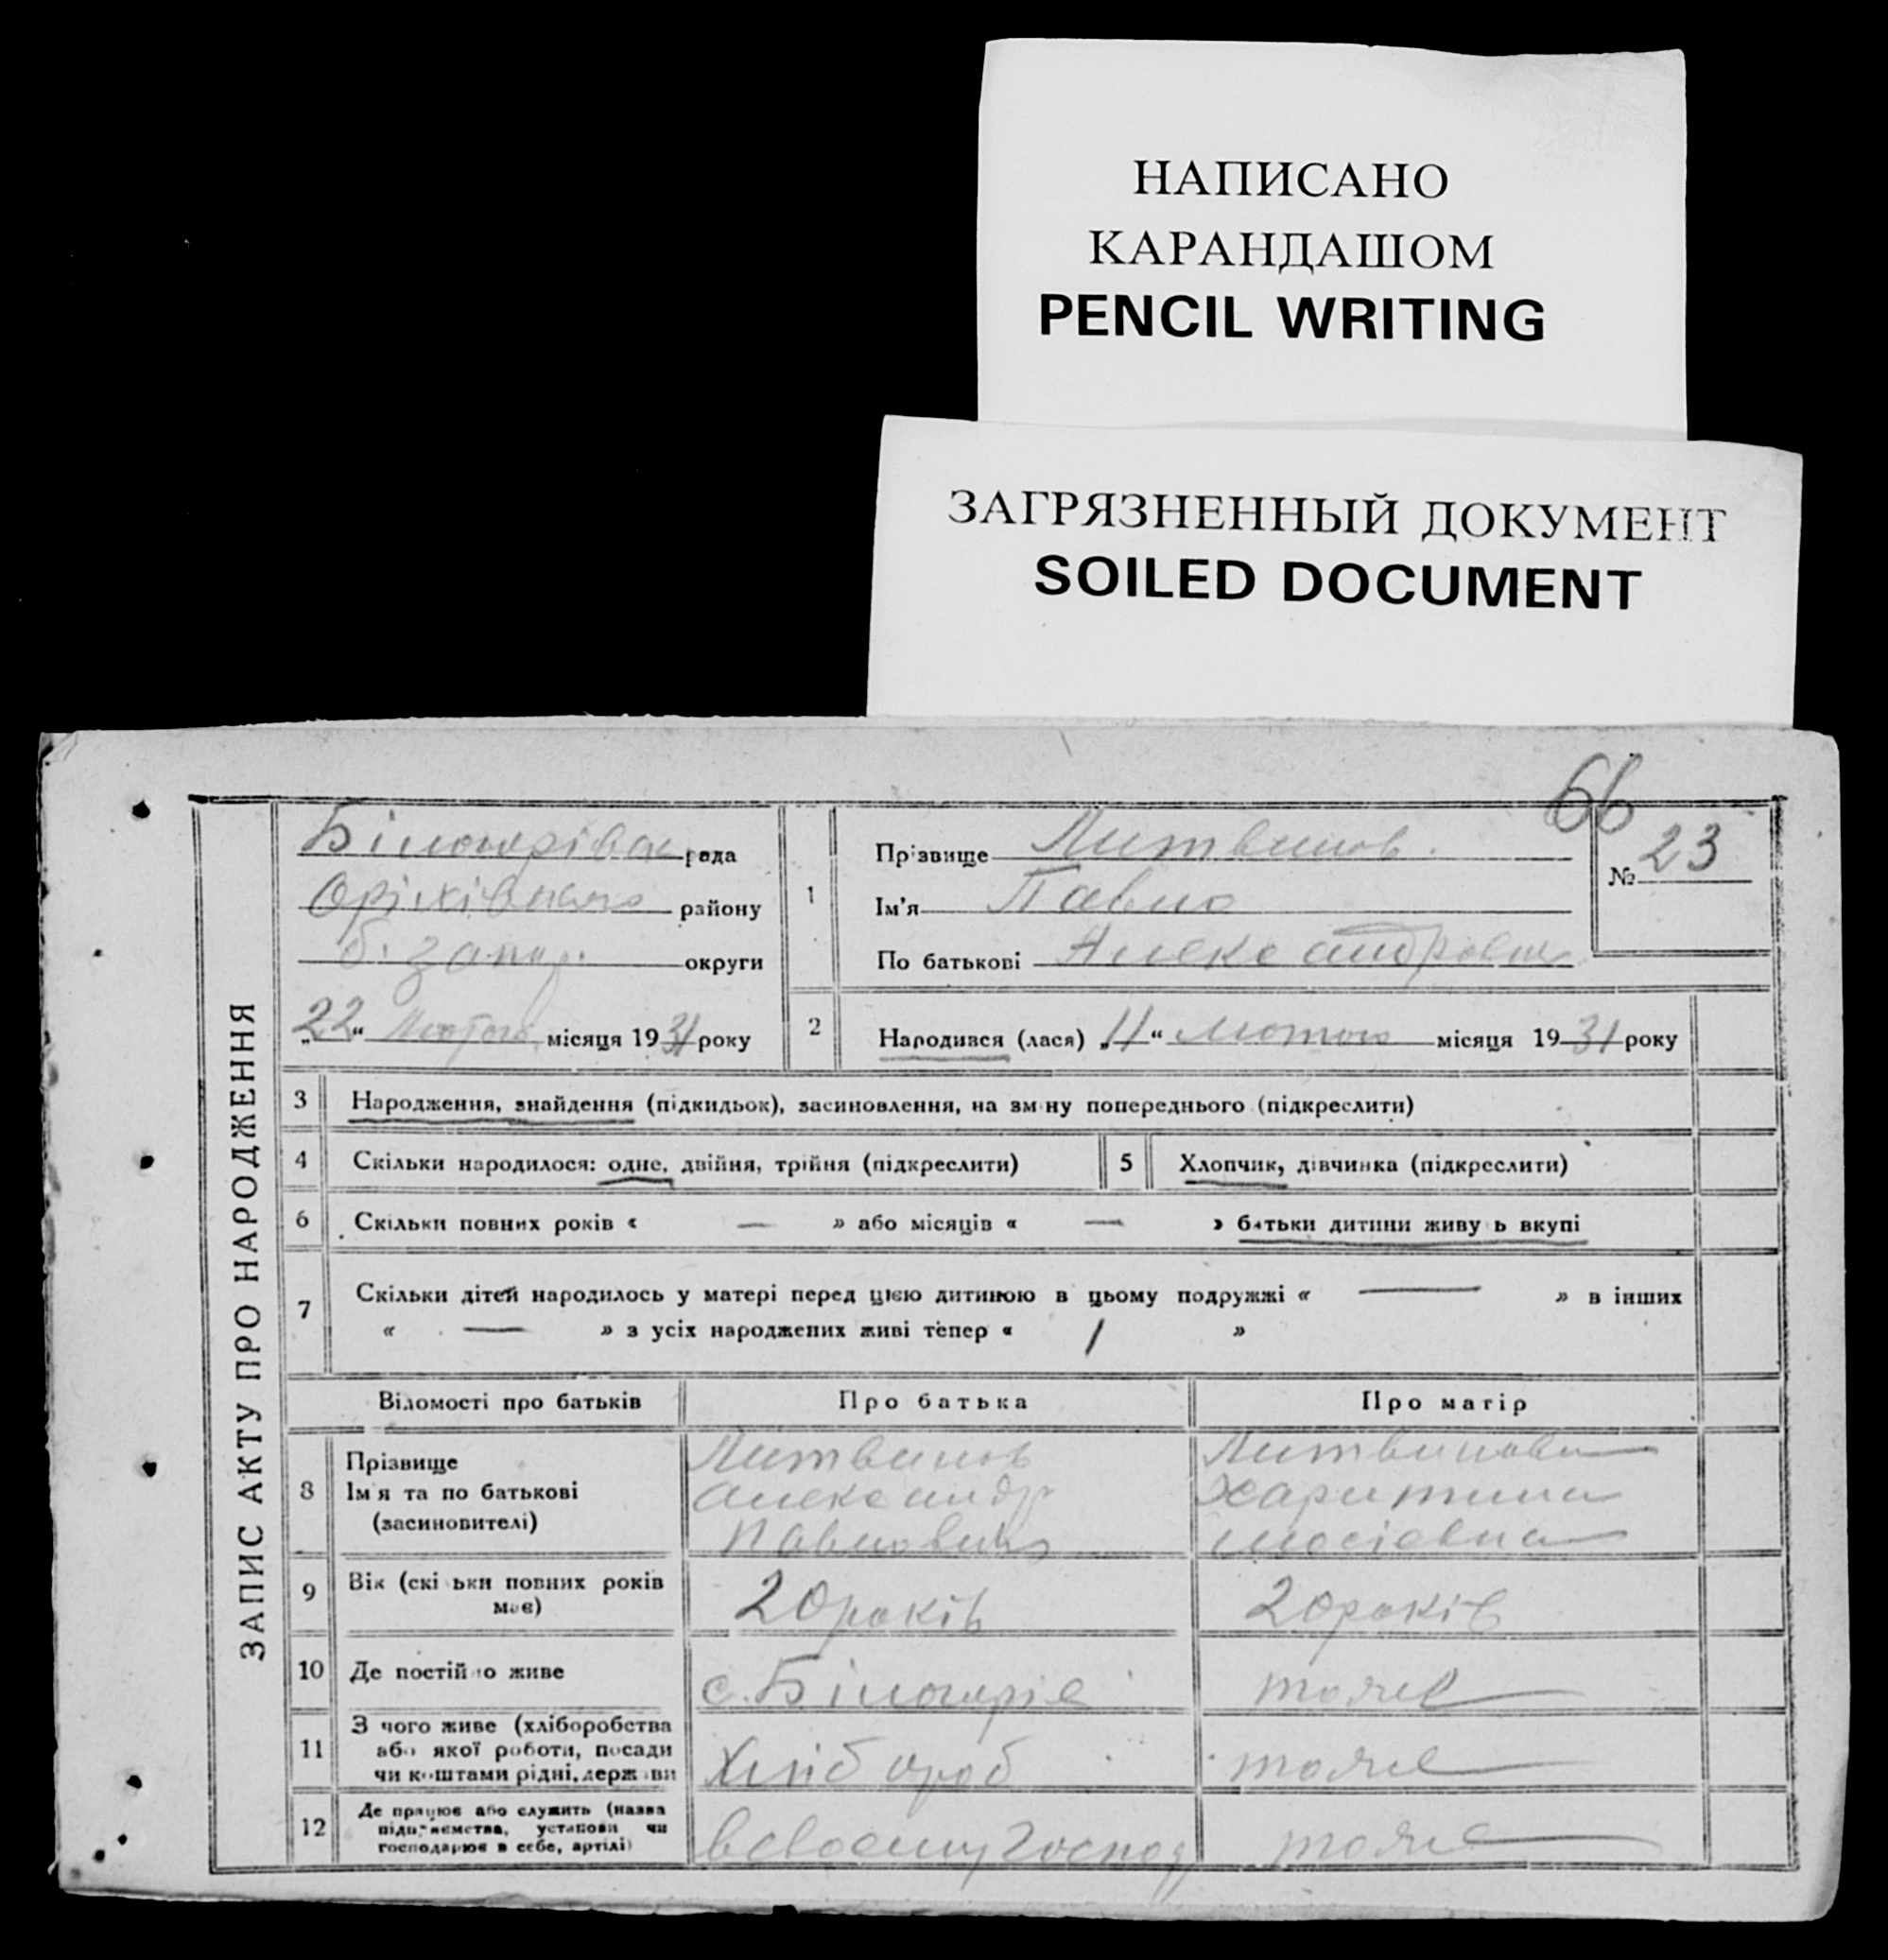 НАПИСАНО
КАРАНДАШОМ
PENCIL WRITING
ЗАГРЯЗНЕННЫЙ ДОКУМЕНТ
SOILED DOCUMENT
66
ЗАПИС АКТУ ПРО НАРОДЖЕННЯ
рада
району
б. запор. округи
„22“ Лютого місяця 1931 року
1 Прізвище Литвинов.
Ім'я Павло
По батькові
№ 23
2 Народився (лася) „11“ Лютого місяця 1931 року
3 Народження, знайдення (підкидьок), засиновлення, на зміну попереднього (підкреслити)
4 Скільки народилося: одне, двійня, трійня (підкреслити)
5 Хлопчик, дівчинка (підкреслити)
6 Скільки повних років « — » або місяців « — » батьки дитини живуть вкупі
7 Скільки дітей народилось у матері перед цією дитиною в цьому подружжі « — » в інших
« — » з усіх народжених живі тепер « 1 »
Відомості про батьків Про батька Про матір
8 Прізвище Литвинов Литвинова
Ім'я та по батькові Александр Харитина
(засиновителі) Павлович Мосіевна
9 Вік (скільки повних років має) 20 років 20 років
10 Де постійно живе с. Білогоріє тоже
11 З чого живе (хліборобства
або якої роботи, посади
чи коштами рідні, держави Хлібороб тоже
12 Де працює або служить (назва
підприємства, установи чи
господарює в себе, артілі) в своему господ тоже